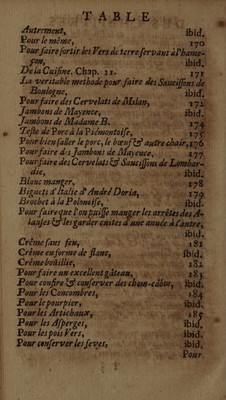 TABLE
Autrement, ibid.
Pour le même, 170
Pour faire sortir les Vers de terre servant à l'hame-
çon, ibid.
De la Cuisine. Chap. 11. 171
La veritable methode pour faire des Saucissons de
Boulogne, ibid.
Pour faire des Cervelats de Milan, 172
Jambons de Mayence, ibid.
Jambons de Madame B. 174
Teste de Porc à la Piémontoise, 175
Pour bien saller le porc, le bœuf & autre chair, 176
Pour faire des Jambons de Mayence, 177
Pour faire des Cervelats & Saucissons de Lombar-
die, ibid.
Blanc manger, 178
Bignets d'Italie d'André Doria, 179
Brochet à la Polonoise, ibid.
Pour faire que l'on puisse manger les arrêtes des A-
lauses & les garder cuites d'une année à l'autre,
ibid.
Crême sans feu, 181
Crême en forme de flanc, ibid.
Crême boüillie, 182
Pour faire un excellent gâteau, 183
Pour confire & conserver des chou-cabus, ibid.
Pour les Concombres, 184
Pour le pourpier, ibid.
Pour les Artichaux, 185
Pour les Asperges, ibid.
Pour les pois Vers, ibid.
Pour conserver les feves, ibid.
Pour